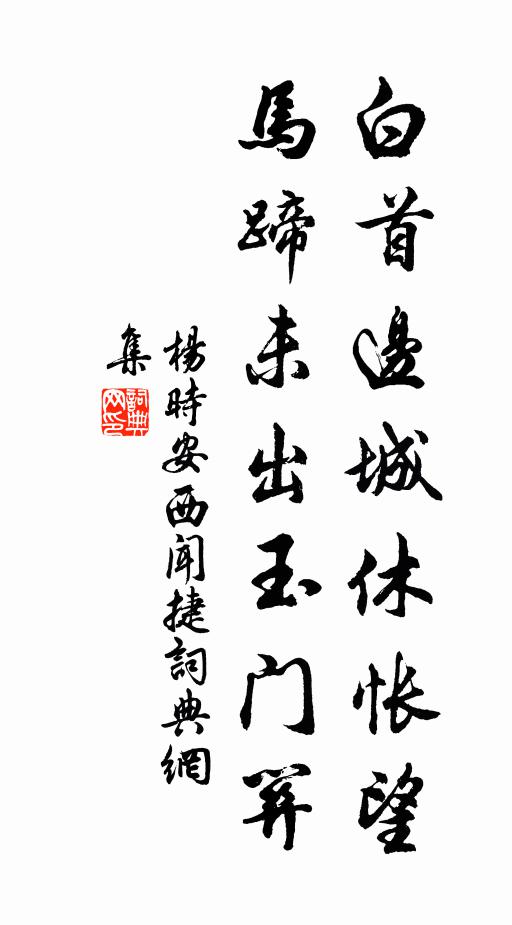 白首邊城休悵望
馬蹄未出玉门關
楊時安西聞捷詞典網
集
詞典
网印